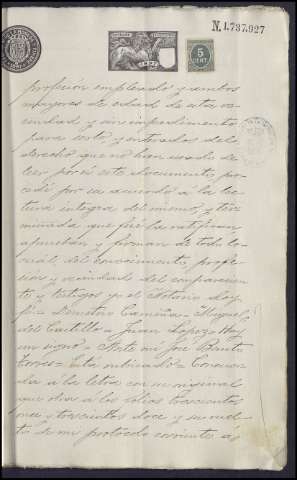 N. 1.787.927
5
CENT.
profesión empleado y ambos
mayores de edad de esta ve-
cindad y sin impedimento
para serlo, y enterados del
derecho que no han usado de
leer por sí este documento, pro-
cedí por su acuerdo á la lec-
tura íntegra del mismo, y ter-
minada que fué la ratifican
aprueban y firman de todo lo
cual, del conocimiento, profe-
sión y vecindad del comparecien-
te y testigos yo el Notario doy
fé = Demetrio = Miguel
del Castillo = Juan Lopez = Hay
un signo = Ante mi José Benito
Torres = Esta rubricado = Concuer-
da á la letra con su original
que obra á los folios trescientos
once y trescientos doce y su vuel-
to de mi protocolo corriente á